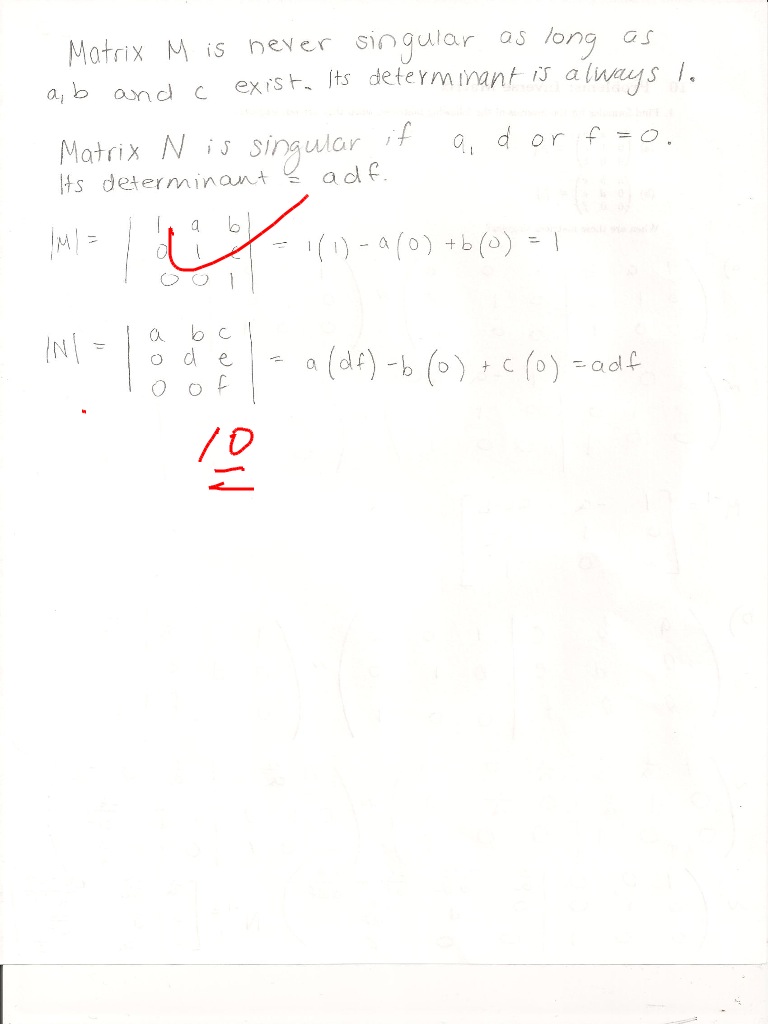 Matrix M is never singular as long as
a, b and c exist. Its determinant is always 1.
Matrix N is singular if a, d or f = 0.
Its determinant = adf.
|M| = | 1 a b | = 1(1) - a(0) + b(0) = 1
0 1 c
0 0 1
|N| = | a b c | = a(df) - b(0) + c(0) = adf
0 d e
0 0 f
10